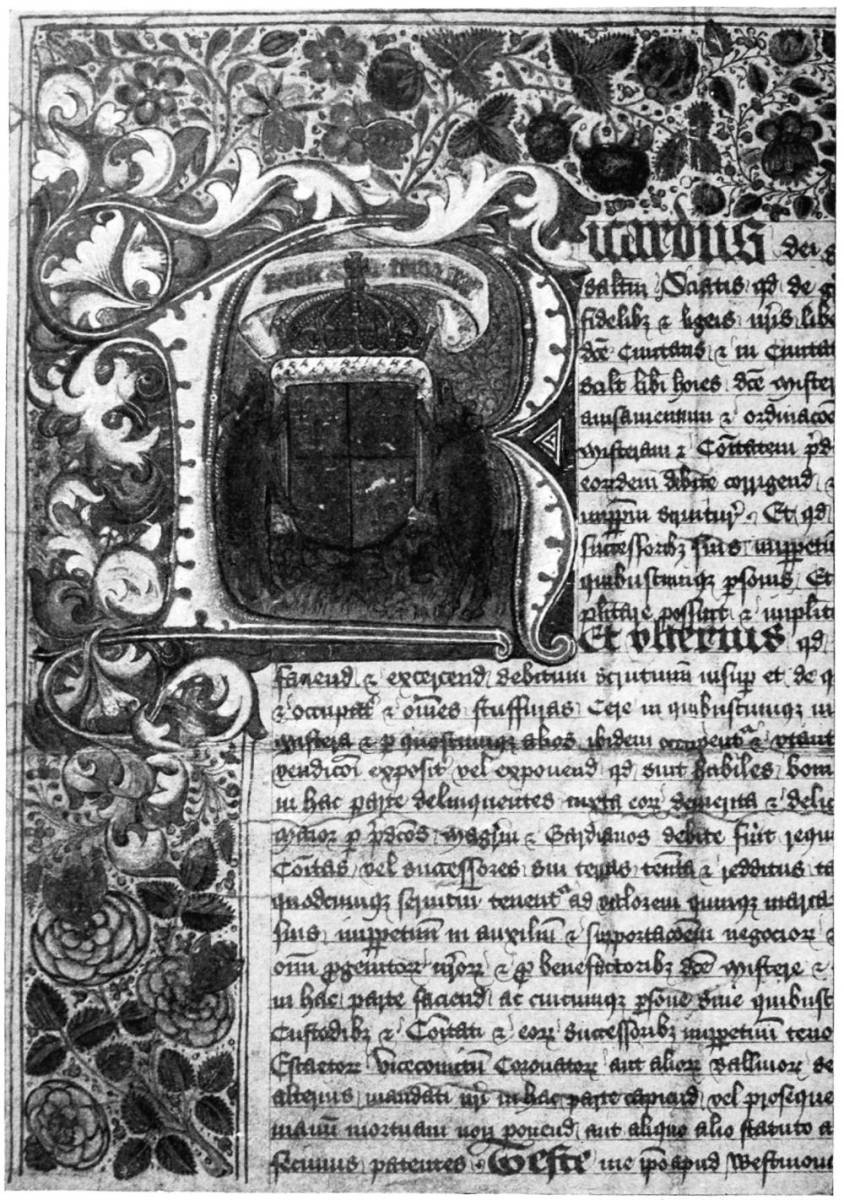 Ricardus dei g
saltm Sciatis qd de g
fidelibz & ligeis nris libe
dce Civitatis & in Civitat
scilt libi hoies dce Mister
avisamentum & ordinacoe
Misteram & Coitatem pd
eordem debite corrigend &
imppm Et qd
successoribz suis imppetu
quibuscumqz psonis Et
plitare possint & implit
Et ulterius qd
faciend & excercend debitum scrutinium insup et de q
& occupat & omes stuffuras Cere in quibuscumqz
Mistera & p quoscumqz alios ibidem occupent & utant
vendicoi exposit vel exponend qd sint habiles bon
in hac parte delinquentes iuxta eor demerita & delic
Maior p pdcos Magrm & Gardianos debite fuit requi
Coitas vel successores sui terras tenta & redditus ta
quodcumqz servitiu tenent ad valorem quinqz marca
suis imppetuu in auxiliu & supportacoem negocior &
oim pgenitor nror & p benefactoribz dce Mistere &
in hac parte faciend ac cuicumqz psone sive quibusc
Custodibz & Coitati & eor successoribz imppetuu teno
Escaetor vicecomitu Coronator aut alior Ballivor
alterius mandati nri in hac parte capiend vel proseque
manu mortuam non ponend aut aliquo alio statuto a
fecimus patentes Teste me ipo apud Westmon